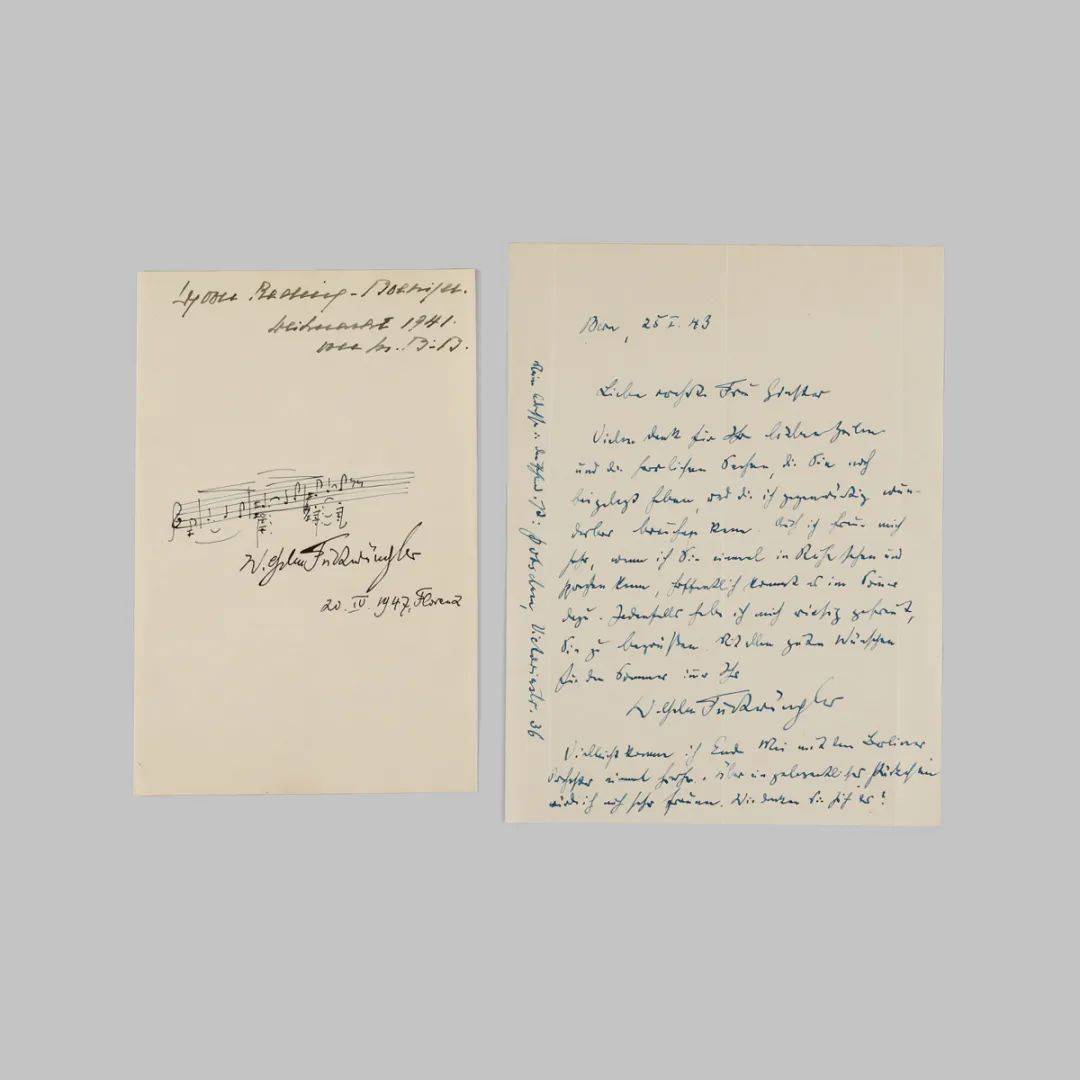 1941.
Wilhelm Furtwängler
20. IV. 1947, Florenz
Bern, 25 I. 43
Liebe Frau
Vielen Dank für Ihre lieben Zeilen
und die herrlichen Sachen, die Sie noch
beigelegt haben, und die ich gegenwärtig wun-
derbar brauchen kann. Auch ich freue mich
sehr, wenn ich Sie einmal in Ruhe sehen und
sprechen kann, hoffentlich kommt es im Sommer
dazu. Jedenfalls habe ich mich riesig gefreut,
Sie zu begrüßen. Mit allen guten Wünschen
für den Sommer immer Ihr
Wilhelm Furtwängler
Vielleicht komme ich Ende Mai mit dem Berliner
Orchester einmal hierher. Über ein gelegentliches
würde ich mich sehr freuen. Wie denken Sie sich es?
Meine Adresse in Deutschland ist: Potsdam, Victoriastr. 36